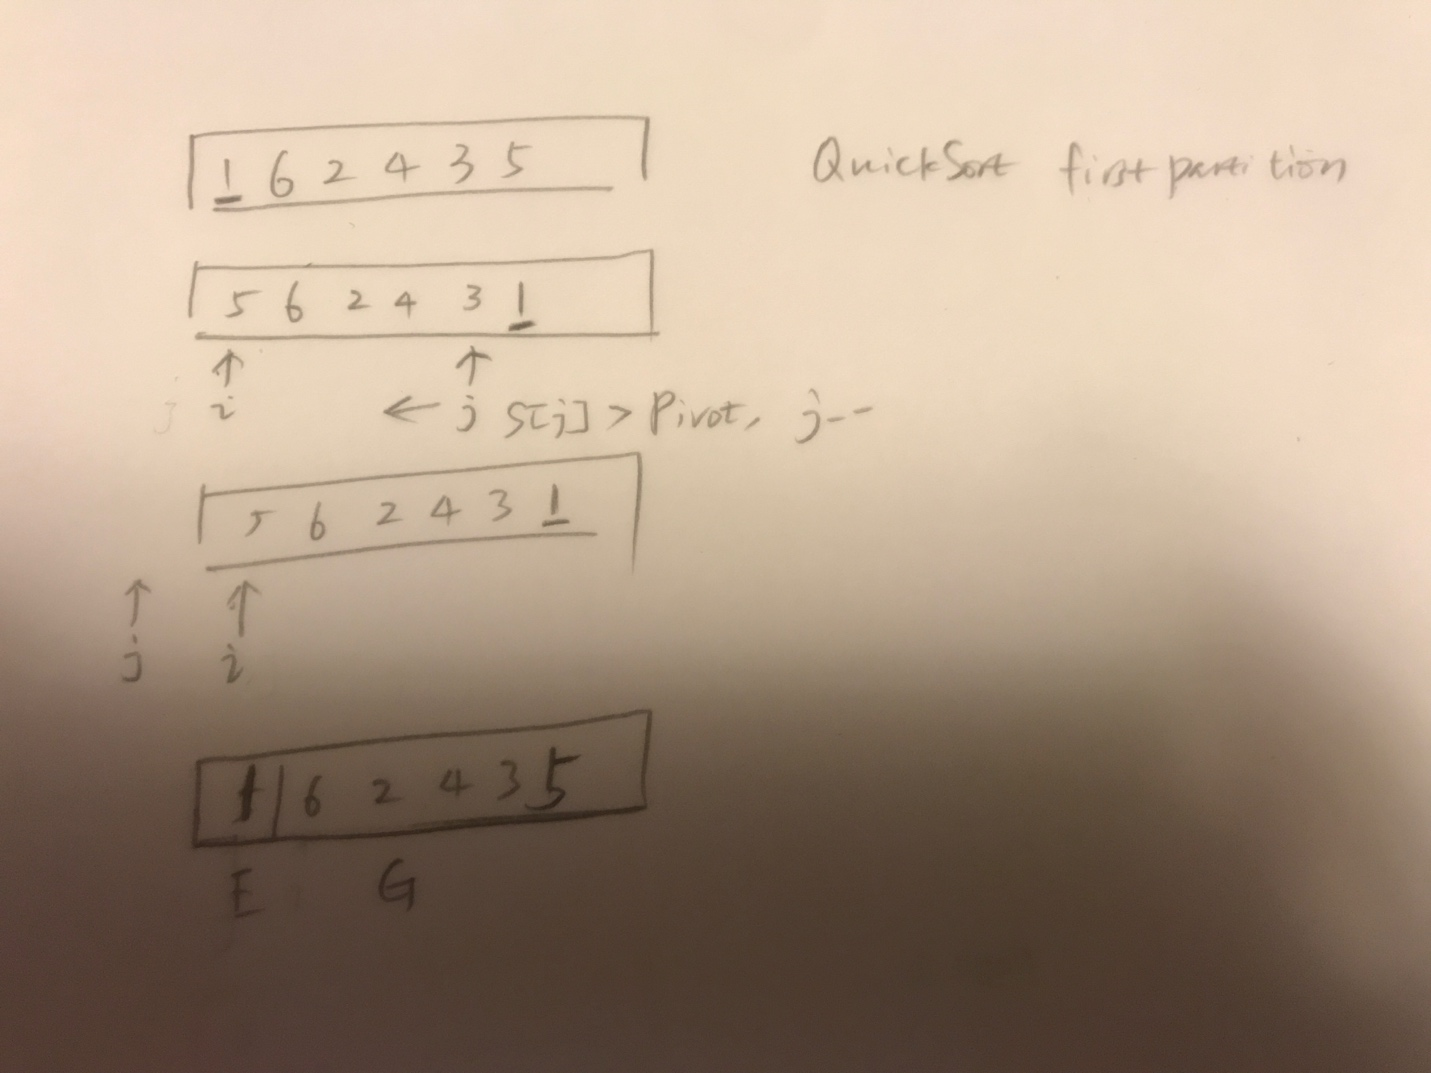 1 6 2 4 3 5 QuickSort first partition
5 6 2 4 3 1
j i ← j S[j] > Pivot, j--
5 6 2 4 3 1
j i
1 | 6 2 4 3 5
E G